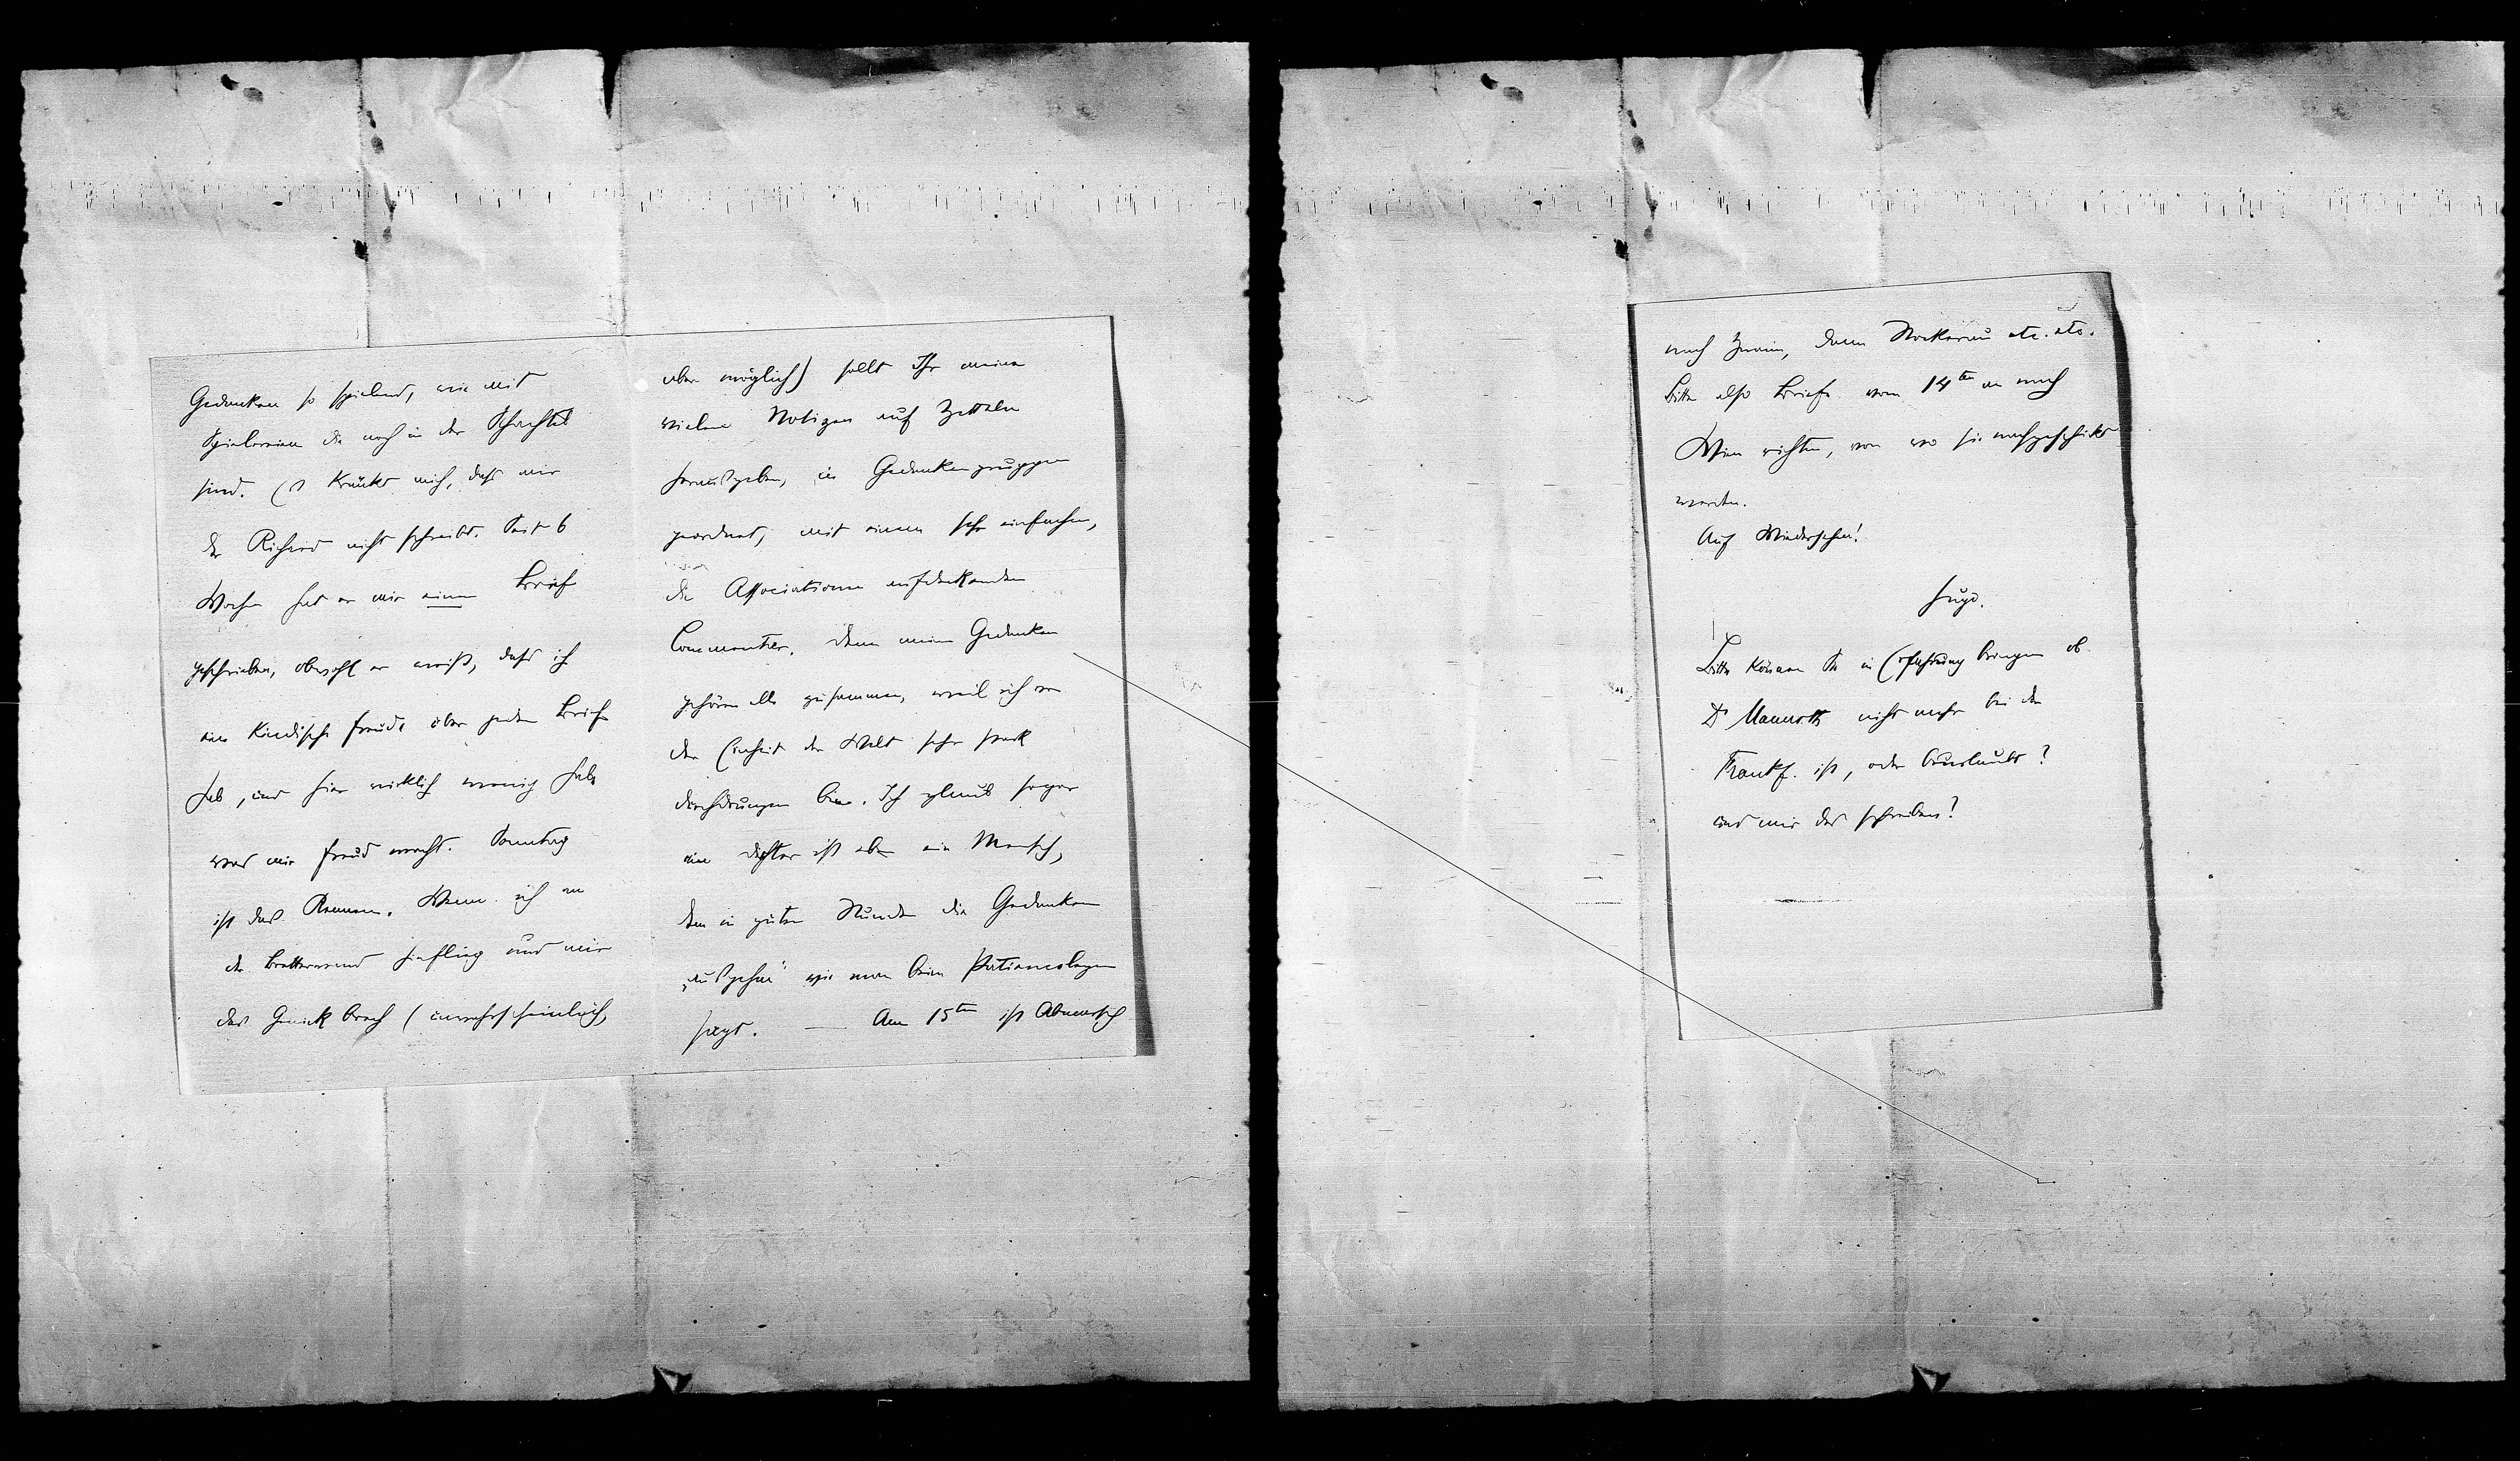 Gedanken so spielend, wie mit
Spielereien die noch in der Schachtel
sind. Es kränkt mich, dass mir
der Richard nicht schreibt. Seit 6
Wochen hat er mir einen Brief
geschrieben, obwohl er weiß, dass ich
eine kindische Freude über jeden Brief
hab, und hier wirklich wenig habe
was mir Freud macht. Sonntag
ist das Rennen. Wenn ich an
die Bretterwand hinflieg und mir
das Genick brech (unwahrscheinlich,
aber möglich) sollt Ihr meine
vielen Notizen auf Zetteln
herausgeben, in Gedankengruppen
geordnet, mit einem sehr einfachen,
die Associationen aufdeckenden
Commentar. Denn meine Gedanken
gehören alle zusammen, weil ich von
der Einheit der Welt sehr stark
durchdrungen bin. Ich glaub sogar
ein Dichter ist eben ein Mensch,
dem in guten Stunden die Gedanken
„ausgehen“ wie man beim Patiencelegen
sagt. — Am 15ten ist Abmarsch
nach Znaim, dann Stockerau etc. etc.
Bitte also Briefe vom 14ten an nach
Wien richten, von wo sie nachgeschickt
werden.
Auf Wiedersehen!
Hugo.
Bitte können Sie in Erfahrung bringen ob
Dr nicht mehr bei der
Frankf. ist, oder beurlaubt?
und mir das schreiben?